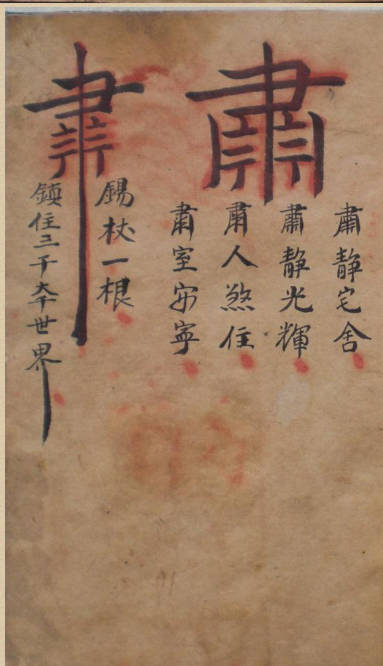 肅
肅静宅舍
肅静光輝
肅人煞住
肅室安寧
錫杖一根
鎮住三千大千世界